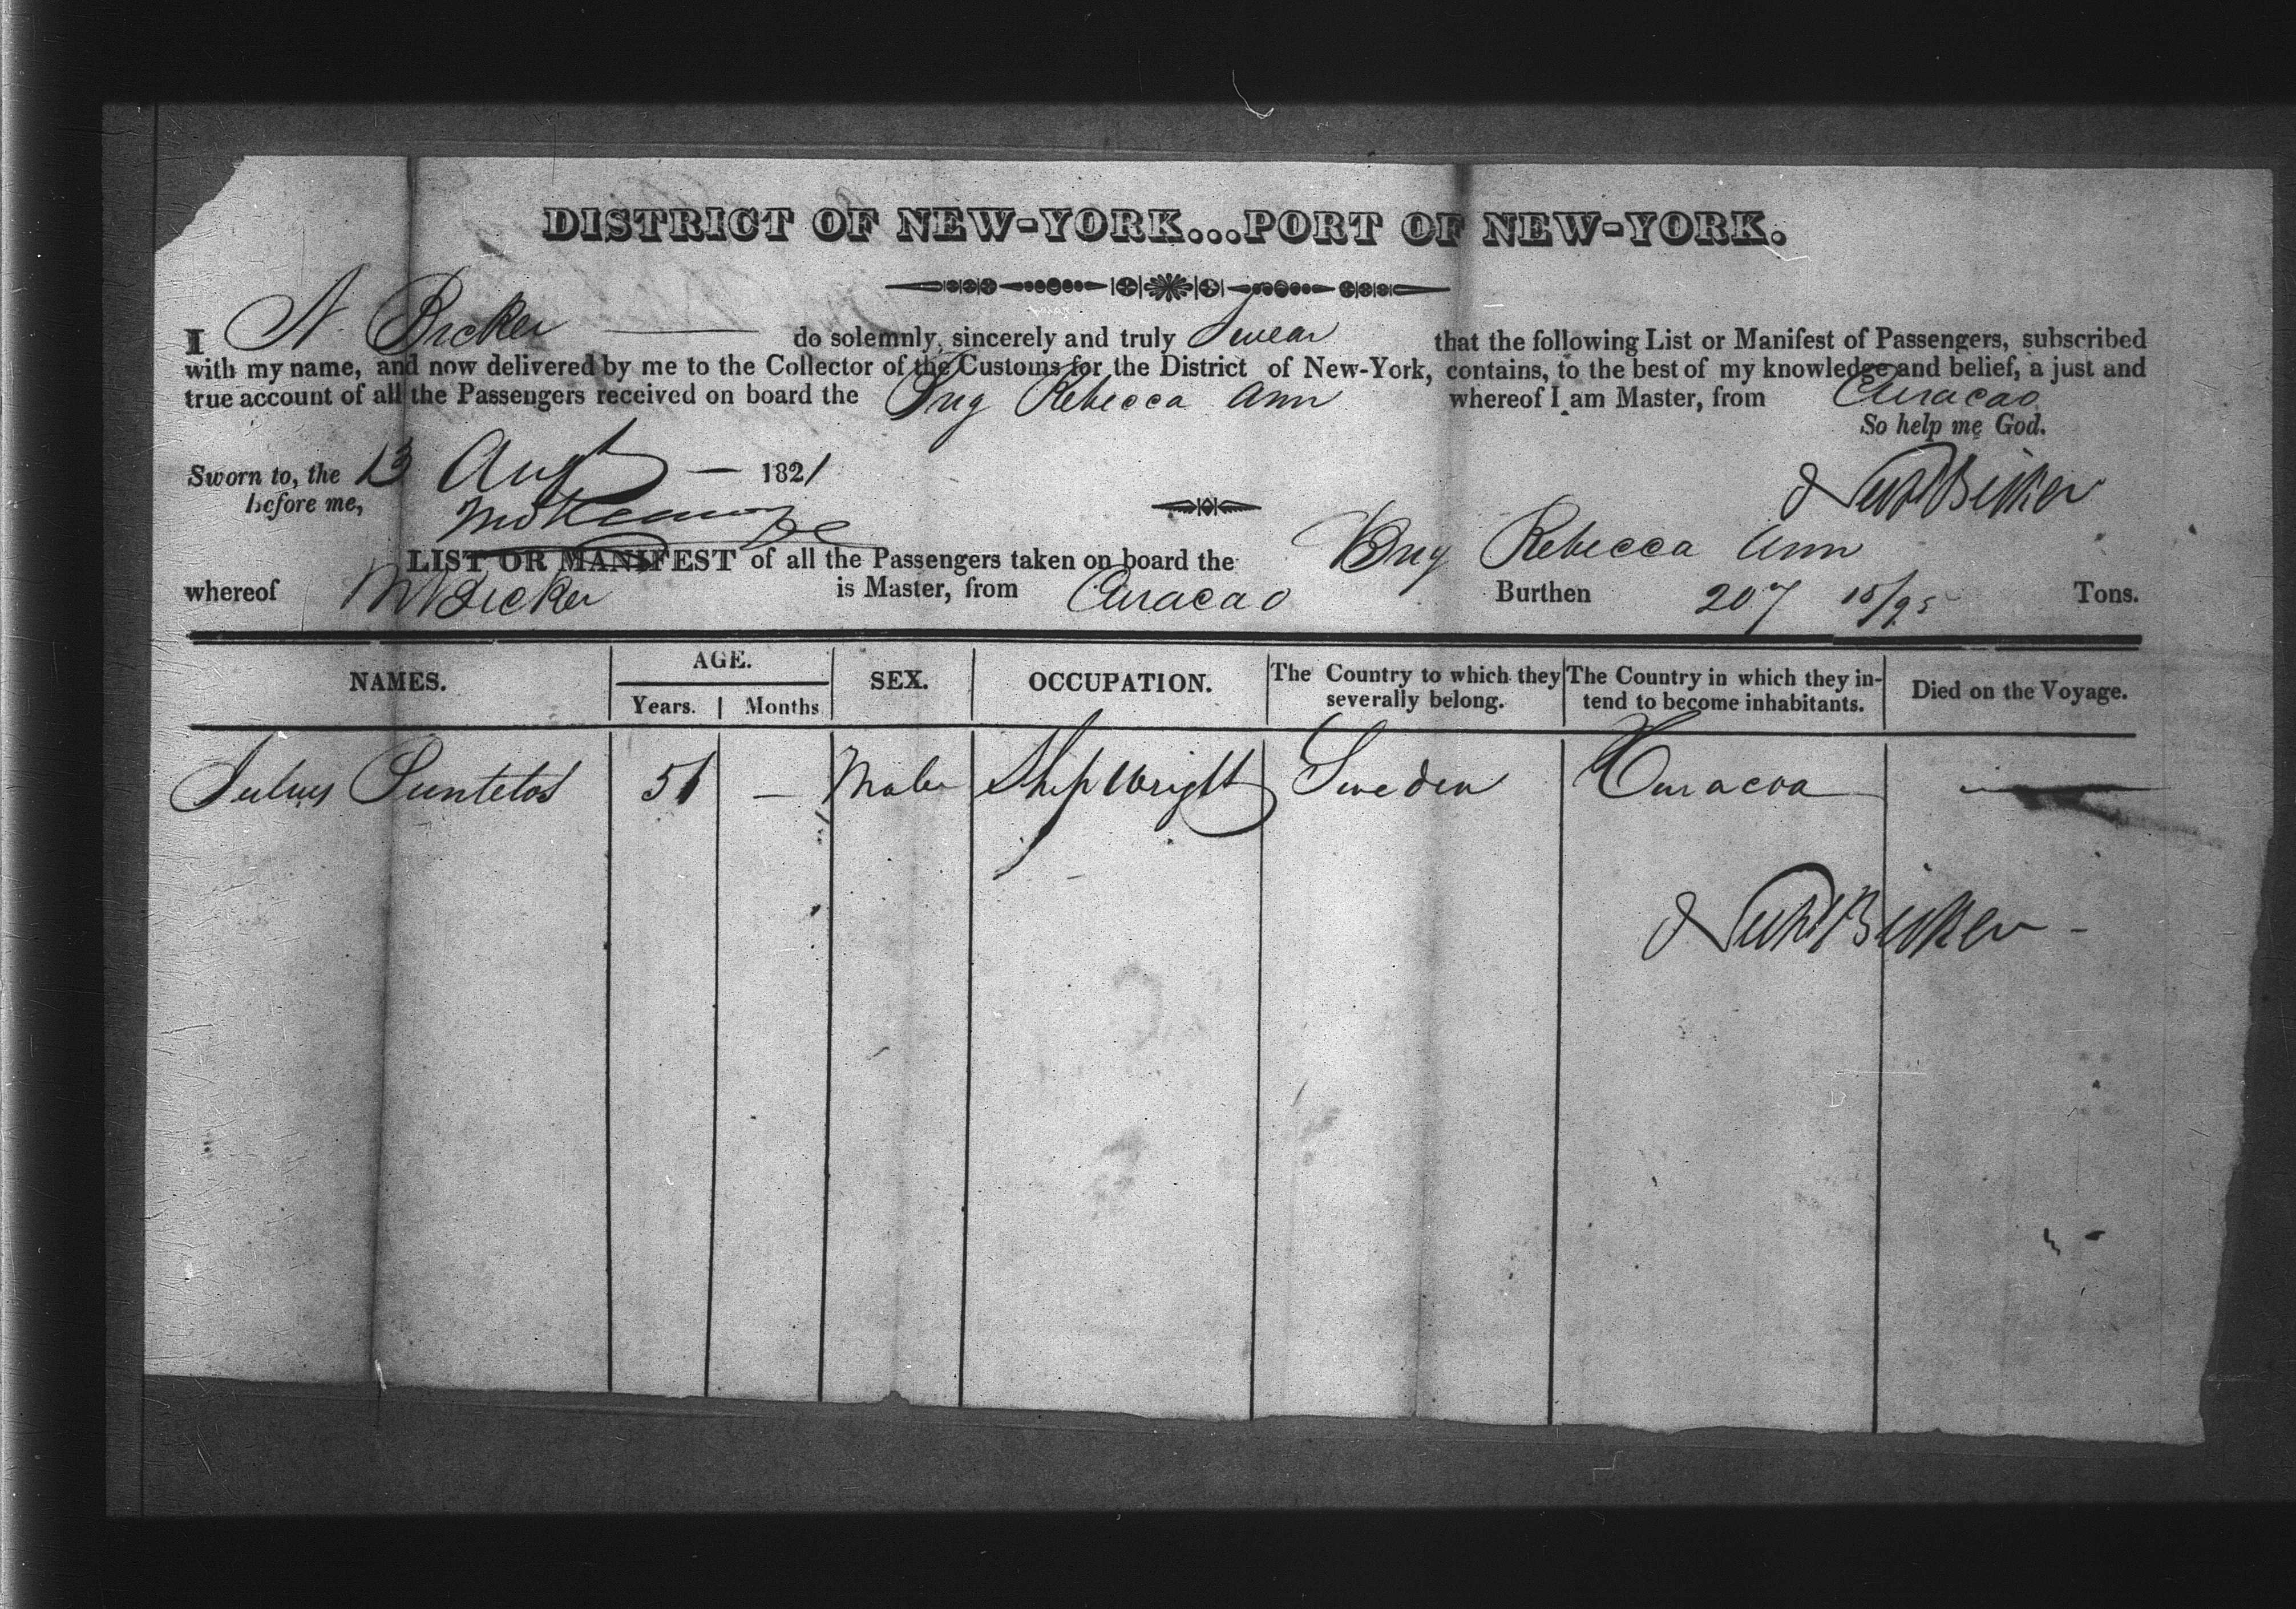 DISTRICT OF NEW-YORK...PORT OF NEW-YORK.
I N. Bicker do solemnly, sincerely and truly Swear that the following List or Manifest of Passengers, subscribed
with my name, and now delivered by me to the Collector of the Customs for the District of New-York, contains, to the best of my knowledge and belief, a just and
true account of all the Passengers received on board the Brig Rebecca Ann whereof I am Master, from Curacao
So help me God.
Sworn to, the 13 Augt — 1821
before me,
Bicker
LIST OR MANIFEST of all the Passengers taken on board the Brig Rebecca Ann
whereof N Bicker is Master, from Curacao Burthen 207 Tons.
NAMES. AGE. SEX. OCCUPATION. The Country to which they severally belong. The Country in which they intend to become inhabitants. Died on the Voyage.
Years. Months
Julius 51 — Male Ship Wright Sweden Curacoa —
Bicker